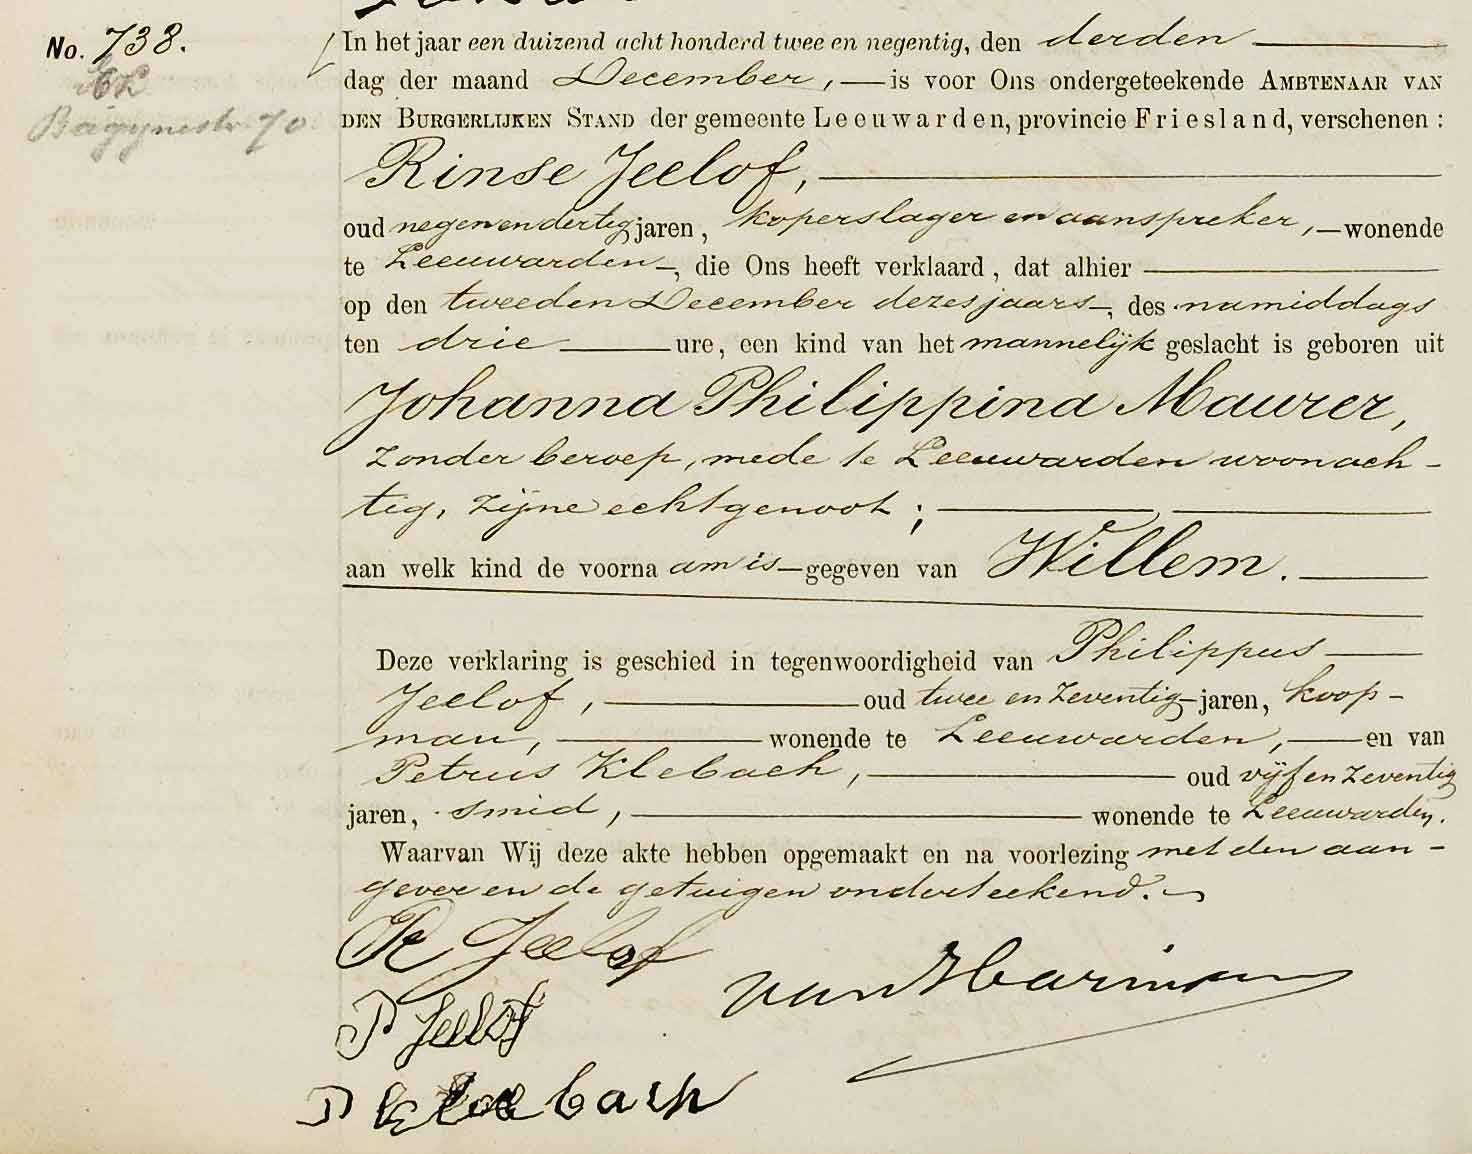 No. 738.
Bagynestr. 70.
In het jaar een duizend acht honderd twee en negentig, den derden
dag der maand December, is voor Ons ondergeteekende AMBTENAAR VAN
DEN BURGERLIJKEN STAND der gemeente Leeuwarden, provincie Friesland, verschenen:
Rinse Jeelof,
oud negenendertig jaren, koperslager en aanspreker, wonende
te Leeuwarden, die Ons heeft verklaard, dat alhier
op den tweeden December dezes jaars, des namiddags
ten drie ure, een kind van het mannelijk geslacht is geboren uit
Johanna Philippina Maurer,
zonder beroep, mede te Leeuwarden woonach-
tig, zijne echtgenoot;
aan welk kind de voorna am is gegeven van Willem.
Deze verklaring is geschied in tegenwoordigheid van Philippus
Jeelof, oud twee en zeventig jaren, koop-
man, wonende te Leeuwarden, en van
Petrus Klebach, oud vijf en zeventig
jaren, smid, wonende te Leeuwarden.
Waarvan Wij deze akte hebben opgemaakt en na voorlezing met den aan-
gever en de getuigen onderteekend.
R Jeelof
van Harinxma
P Jeelof
P Klebach